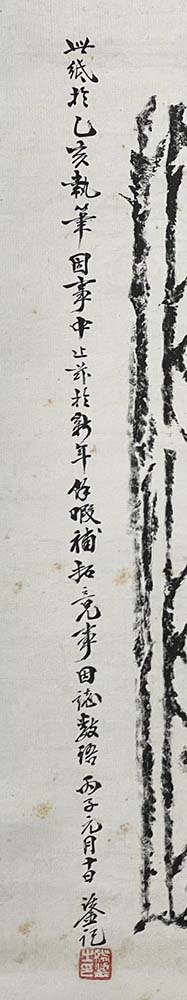 此紙於乙亥執筆因事中止茲於新年餘暇補拓竟事因誌數語 丙子元月十日 鋈記